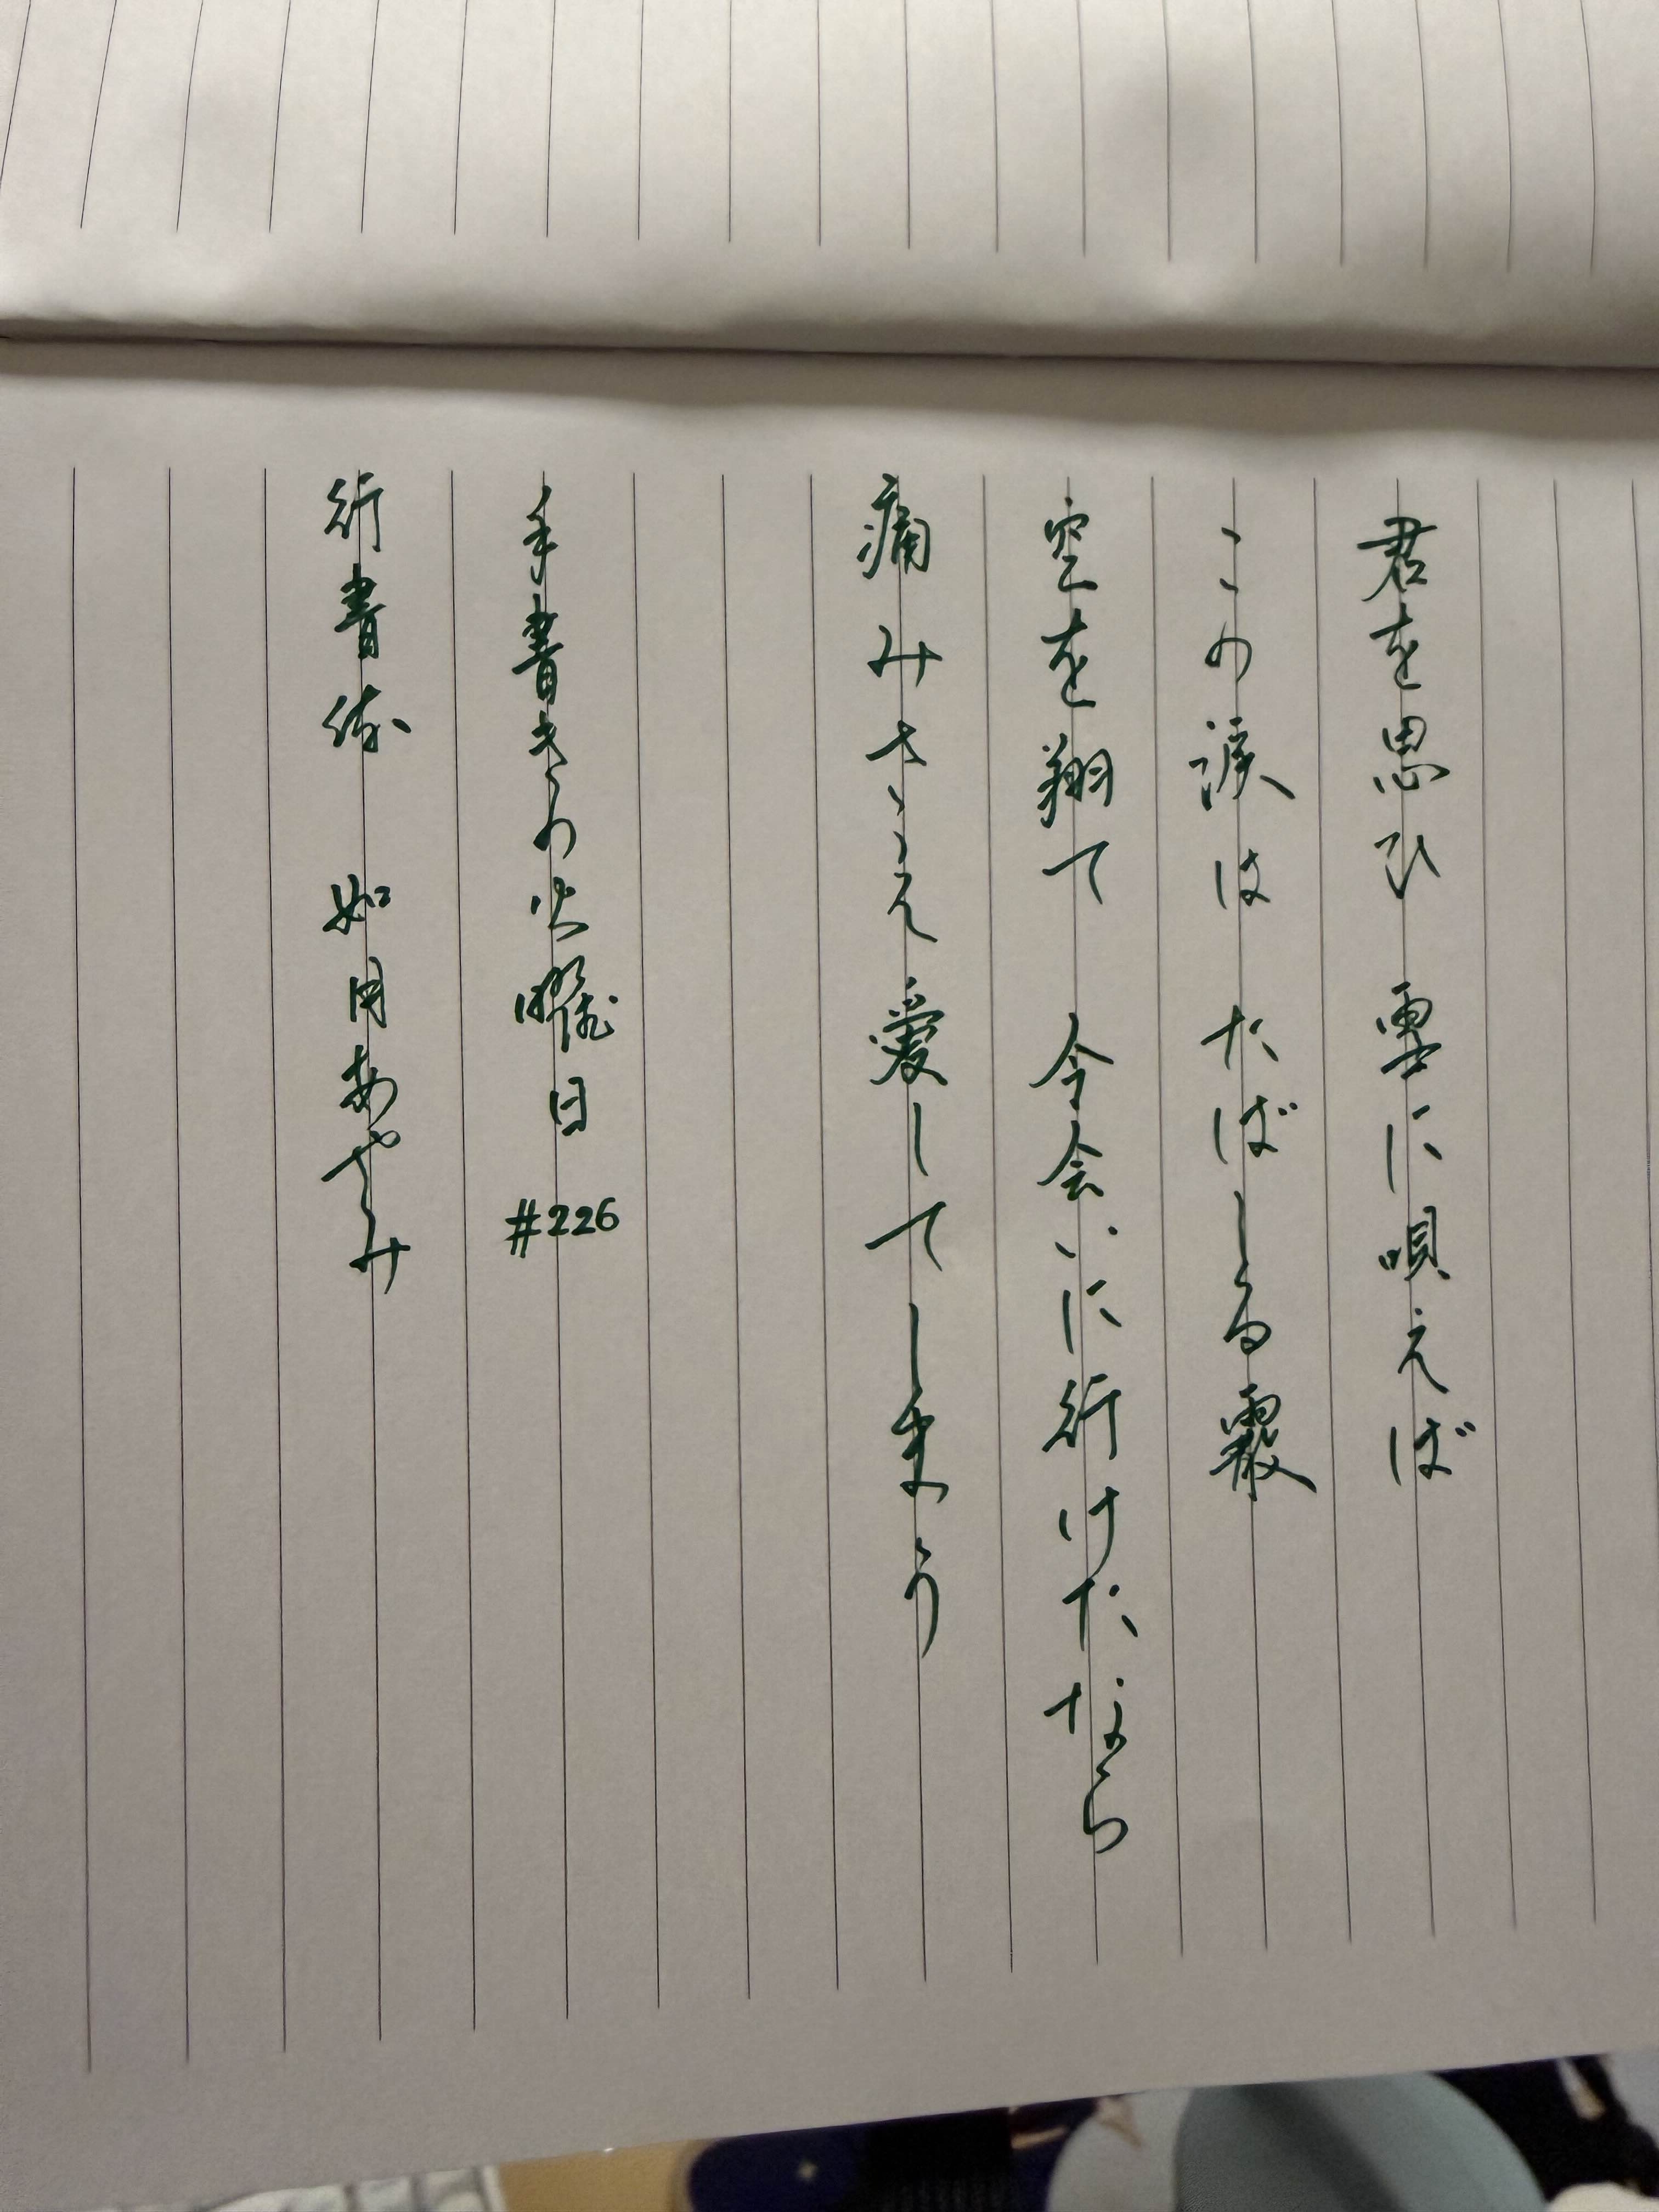 君を思ひ 雫に唄えば
この涙は たばしる霰
空を翔て 今会いに行けたなら
痛みさえ愛してしまう
手書きの火曜日 #226
行書体 如月あやみ